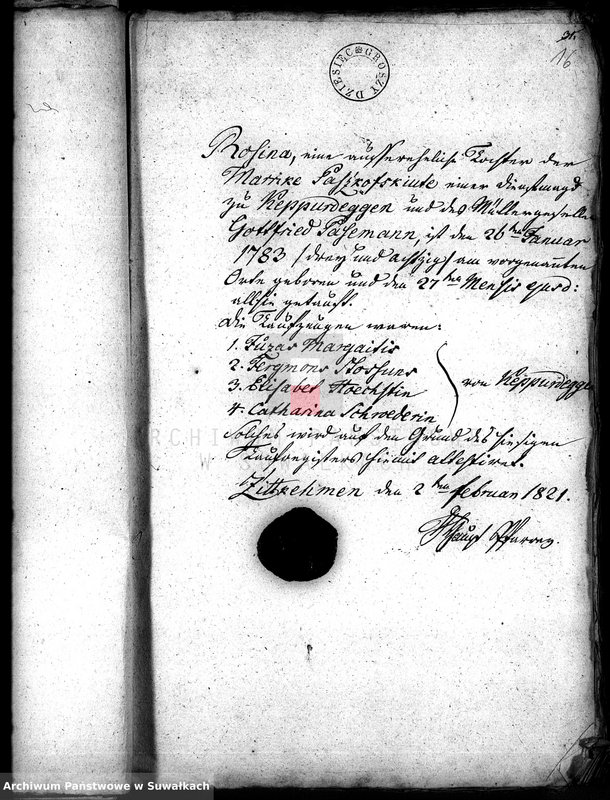 16
DZIESIĘĆ GROSZY
Rosina, eine aussereheliche Tochter der
Marike Paszkofskiute einer Dienstmagd
zu Keppurdeggen und des Müllergesellen
Gottfried Pasemann, ist den 26ten Januar
1783 /drey und achtzig/ am vorgenannten
Orte geboren und den 27ten Mensis ejusd:
allhie getauft.
Die Taufzeugen waren:
1. Juzas Margaitis
2. Jergmons Storfuns
3. Elisabet Hoechstin
4. Catharina Schroederin
von Keppurdeggen
Solches wird auf den Grund des hiesigen
Taufregisters hiemit attestiret.
Zittkehmen den 2ten Februar 1821.
Pfarrer.
Archiwum Państwowe w Suwałkach